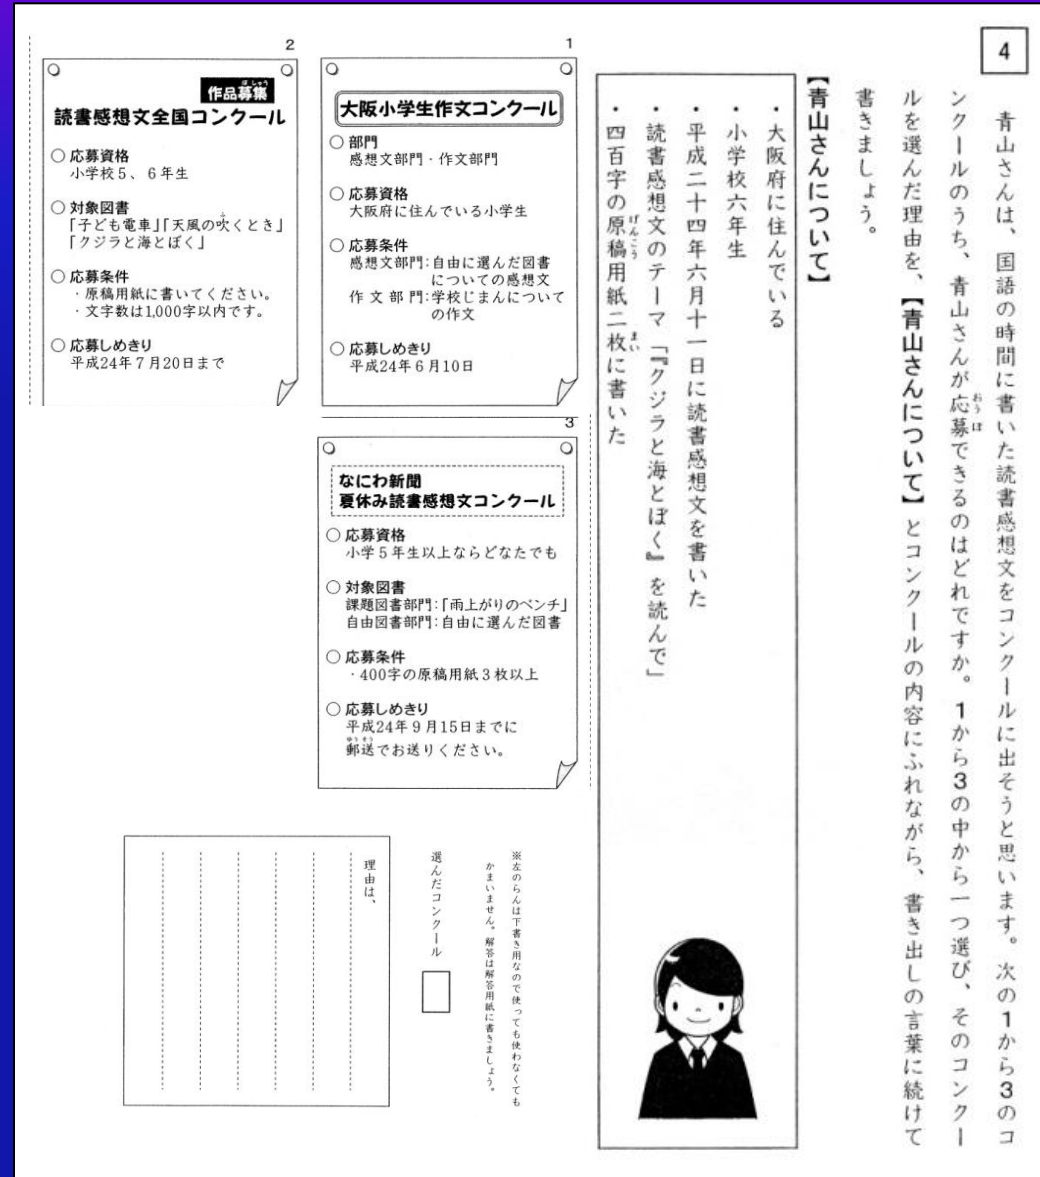 4
青山さんは、国語の時間に書いた読書感想文をコンクールに出そうと思います。次の1から3のコ
ンクールのうち、青山さんが応募できるのはどれですか。1から3の中から一つ選び、そのコンクー
ルを選んだ理由を、【青山さんについて】とコンクールの内容にふれながら、書き出しの言葉に続けて
書きましょう。
おうぼ
【青山さんについて】
・大阪府に住んでいる
・小学校六年生
・平成二十四年六月十一日に読書感想文を書いた
・読書感想文のテーマ「『クジラと海とぼく』を読んで」
・四百字の原稿用紙二枚に書いた
げんこう
まい
1
大阪小学生作文コンクール
○ 部門
感想文部門・作文部門
○ 応募資格
大阪府に住んでいる小学生
○ 応募条件
感想文部門:自由に選んだ図書
についての感想文
作文部門:学校じまんについて
の作文
○ 応募しめきり
平成24年6月10日
2
ぼしゅう
作品募集
読書感想文全国コンクール
○ 応募資格
小学校5、6年生
○ 対象図書
ふ
「子ども電車」「天風の吹くとき」
「クジラと海とぼく」
○ 応募条件
・原稿用紙に書いてください。
・文字数は1,000字以内です。
○ 応募しめきり
平成24年7月20日まで
3
なにわ新聞
夏休み読書感想文コンクール
○ 応募資格
小学5年生以上ならどなたでも
○ 対象図書
課題図書部門:「雨上がりのベンチ」
自由図書部門:自由に選んだ図書
○ 応募条件
・400字の原稿用紙3枚以上
○ 応募しめきり
平成24年9月15日までに
ゆうそう
郵送でお送りください。
※左のらんは下書き用なので使っても使わなくても
かまいません。解答は解答用紙に書きましょう。
選んだコンクール
理由は、